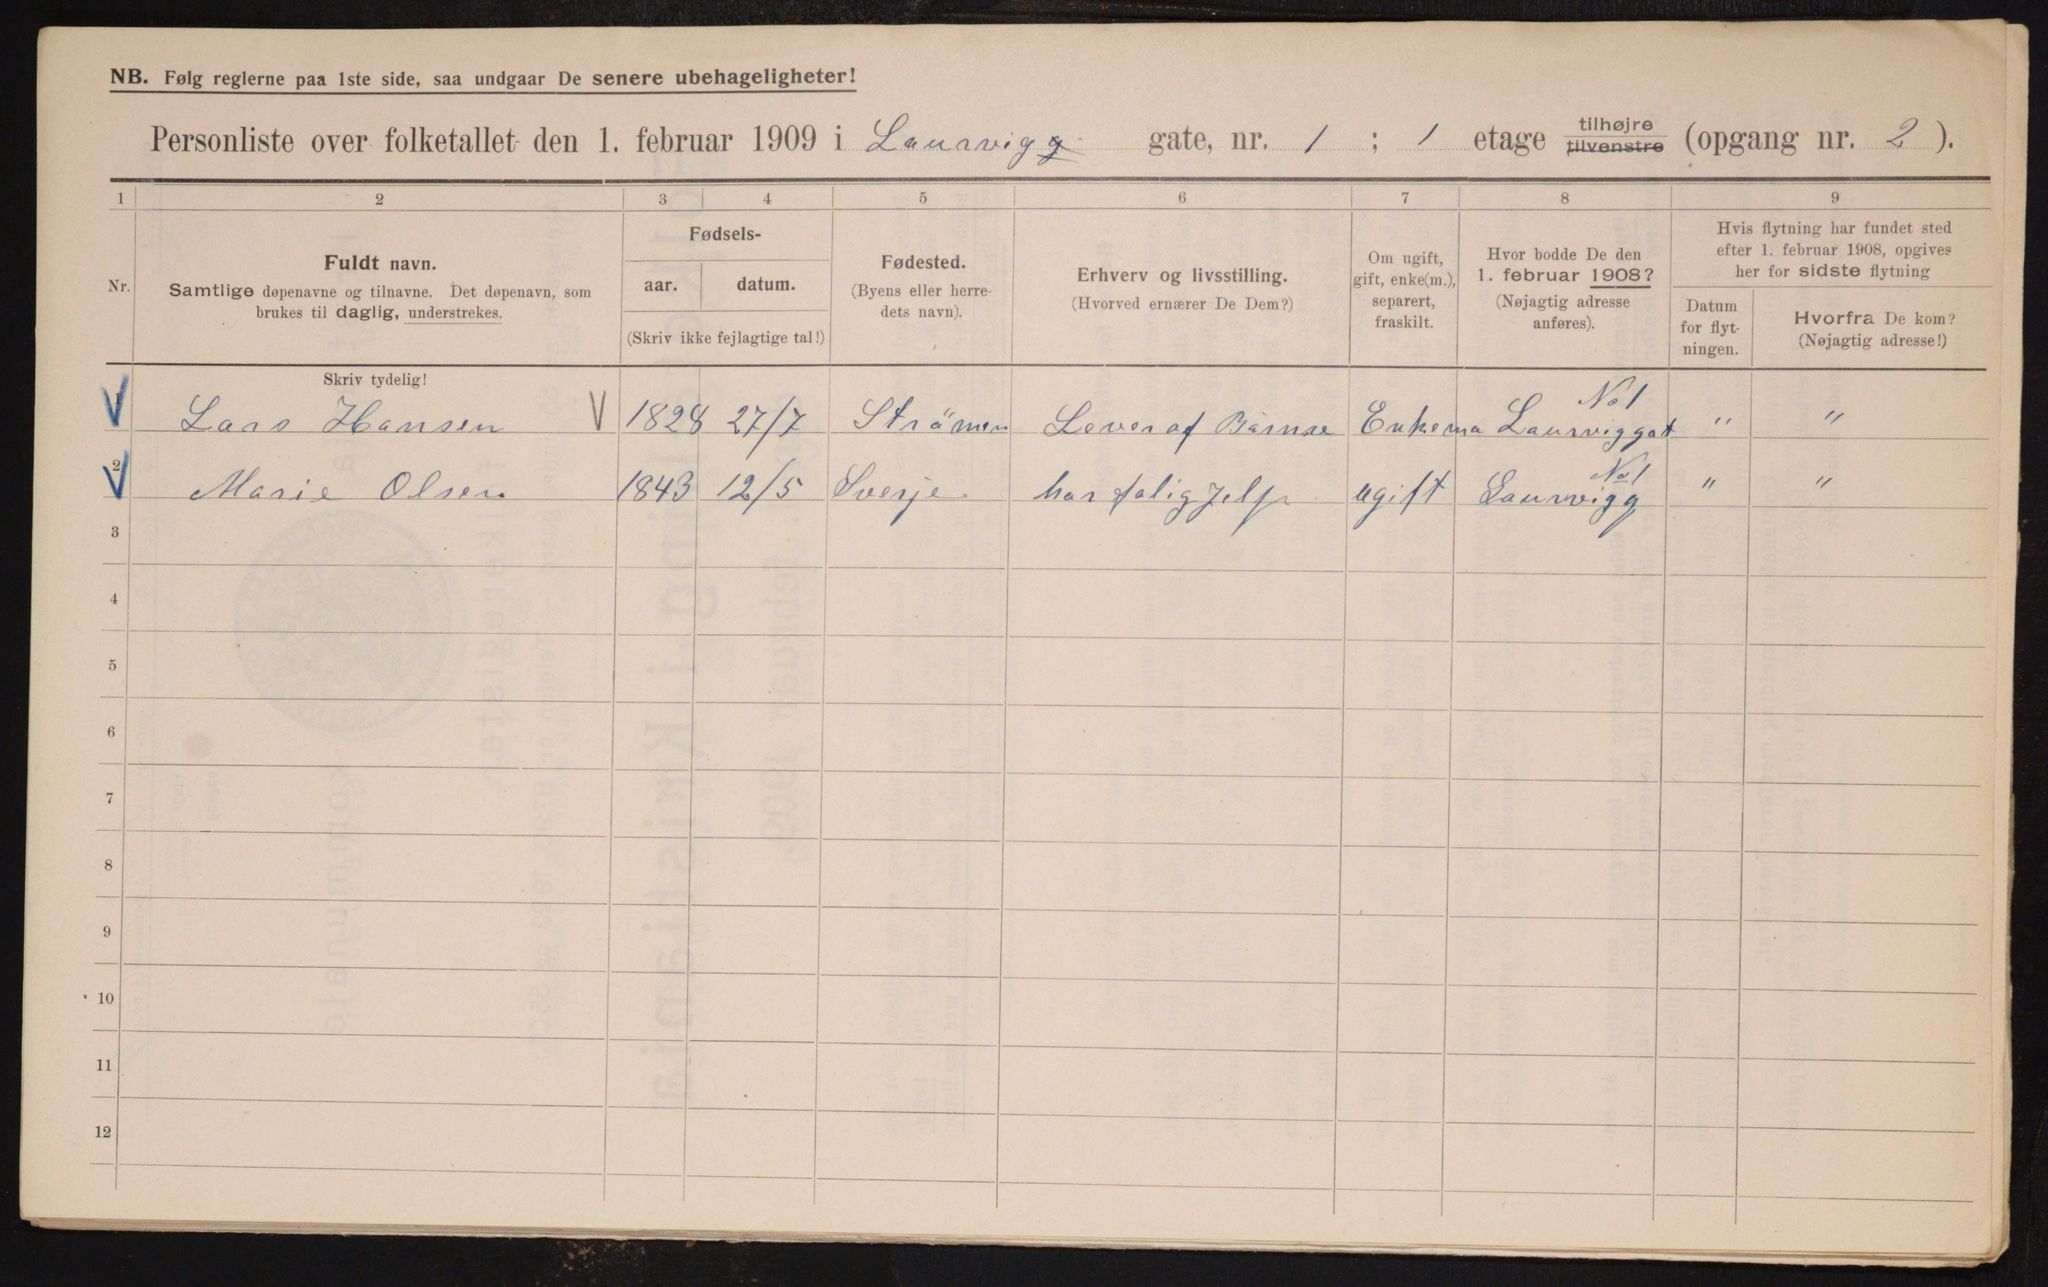 NB. Følg reglerne paa 1ste side, saa undgaar De senere ubehageligheter!
Personliste over folketallet den 1. februar 1909 i Laurvigg gate, nr. 1 ; 1 etage tilhøjre tilvenstre (opgang nr. 2 ).
1 2 3 4 5 6 7 8 9
Nr.
Fuldt navn.
Samtlige døpenavne og tilnavne. Det døpenavn, som
brukes til daglig, understrekes.
Fødsels-
aar. datum.
(Skriv ikke fejlagtige tal!)
Fødested.
(Byens eller herre-
dets navn).
Erhverv og livsstilling.
(Hvorved ernærer De Dem?)
Om ugift,
gift, enke(m.),
separert,
fraskilt.
Hvor bodde De den
1. februar 1908?
(Nøjagtig adresse
anføres).
Hvis flytning har fundet sted
efter 1. februar 1908, opgives
her for sidste flytning
Datum
for flyt-
ningen.
Hvorfra De kom?
(Nøjagtig adresse!)
Skriv tydelig!
No 1
1 Lars Hansen 1828 27/7 Strömen Lever af Barnse Enkema Laurviggat " "
No 1
2 Marie Olsen 1843 12/5 Sverje har falig Jelp ugift Laurvigg " "
3
4
5
6
7
8
9
10
11
12